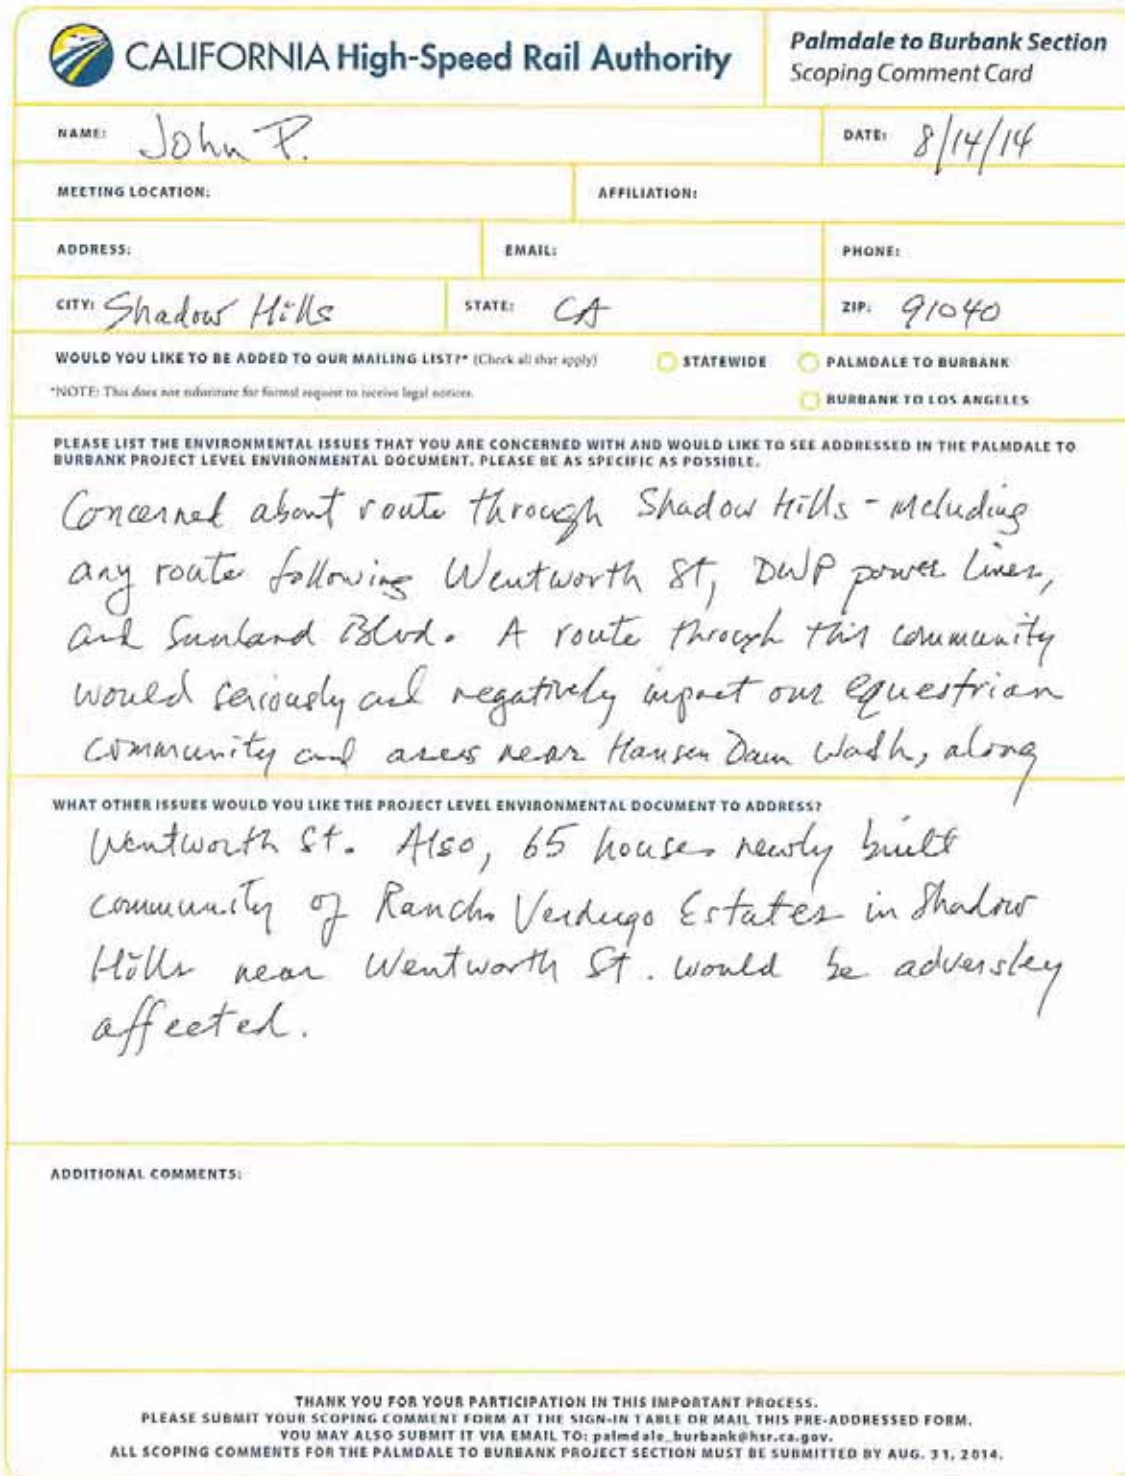 CALIFORNIA High-Speed Rail Authority
Palmdale to Burbank Section
Scoping Comment Card
NAME: John P.
DATE: 8/14/14
MEETING LOCATION:
AFFILIATION:
ADDRESS:
EMAIL:
PHONE:
CITY: Shadow Hills
STATE: CA
ZIP: 91040
WOULD YOU LIKE TO BE ADDED TO OUR MAILING LIST?* (Check all that apply)
STATEWIDE
PALMDALE TO BURBANK
*NOTE: This does not substitute for formal request to receive legal notices.
BURBANK TO LOS ANGELES
PLEASE LIST THE ENVIRONMENTAL ISSUES THAT YOU ARE CONCERNED WITH AND WOULD LIKE TO SEE ADDRESSED IN THE PALMDALE TO
BURBANK PROJECT LEVEL ENVIRONMENTAL DOCUMENT. PLEASE BE AS SPECIFIC AS POSSIBLE.
Concerned about route through Shadow Hills - including
any route following Wentworth St, DWP power lines,
and Sunland Blvd. A route through this community
would seriously and negatively impact our equestrian
community and areas near Hansen Dam Wash, along
WHAT OTHER ISSUES WOULD YOU LIKE THE PROJECT LEVEL ENVIRONMENTAL DOCUMENT TO ADDRESS?
Wentworth St. Also, 65 houses newly built
community of Rancho Verdugo Estates in Shadow
Hills near Wentworth St. would be adversley
affected.
ADDITIONAL COMMENTS:
THANK YOU FOR YOUR PARTICIPATION IN THIS IMPORTANT PROCESS.
PLEASE SUBMIT YOUR SCOPING COMMENT FORM AT THE SIGN-IN TABLE OR MAIL THIS PRE-ADDRESSED FORM.
YOU MAY ALSO SUBMIT IT VIA EMAIL TO: palmdale_burbank@hsr.ca.gov.
ALL SCOPING COMMENTS FOR THE PALMDALE TO BURBANK PROJECT SECTION MUST BE SUBMITTED BY AUG. 31, 2014.